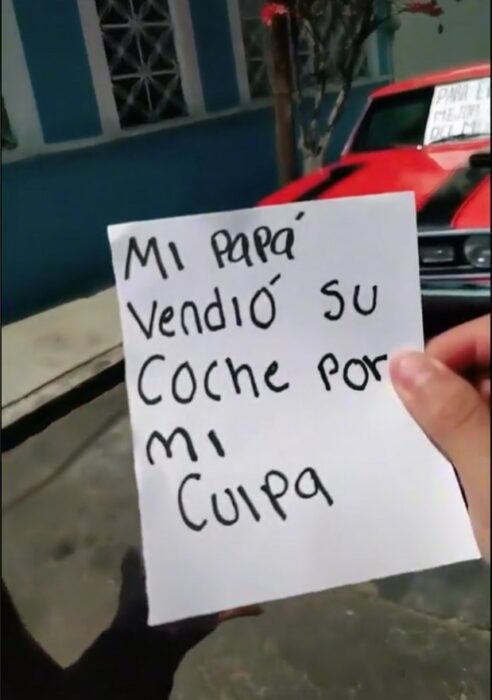 PARA EL
MEJOR
DEL M
Mi PaPá
Vendió su
Coche Por
mi
Culpa